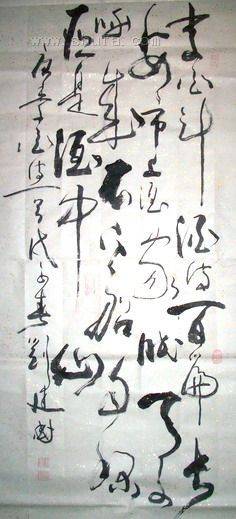 李白斗酒诗百篇长
安市上酒家眠天子
呼来不上船自称
臣是酒中仙
诗一首戊子春劉建國